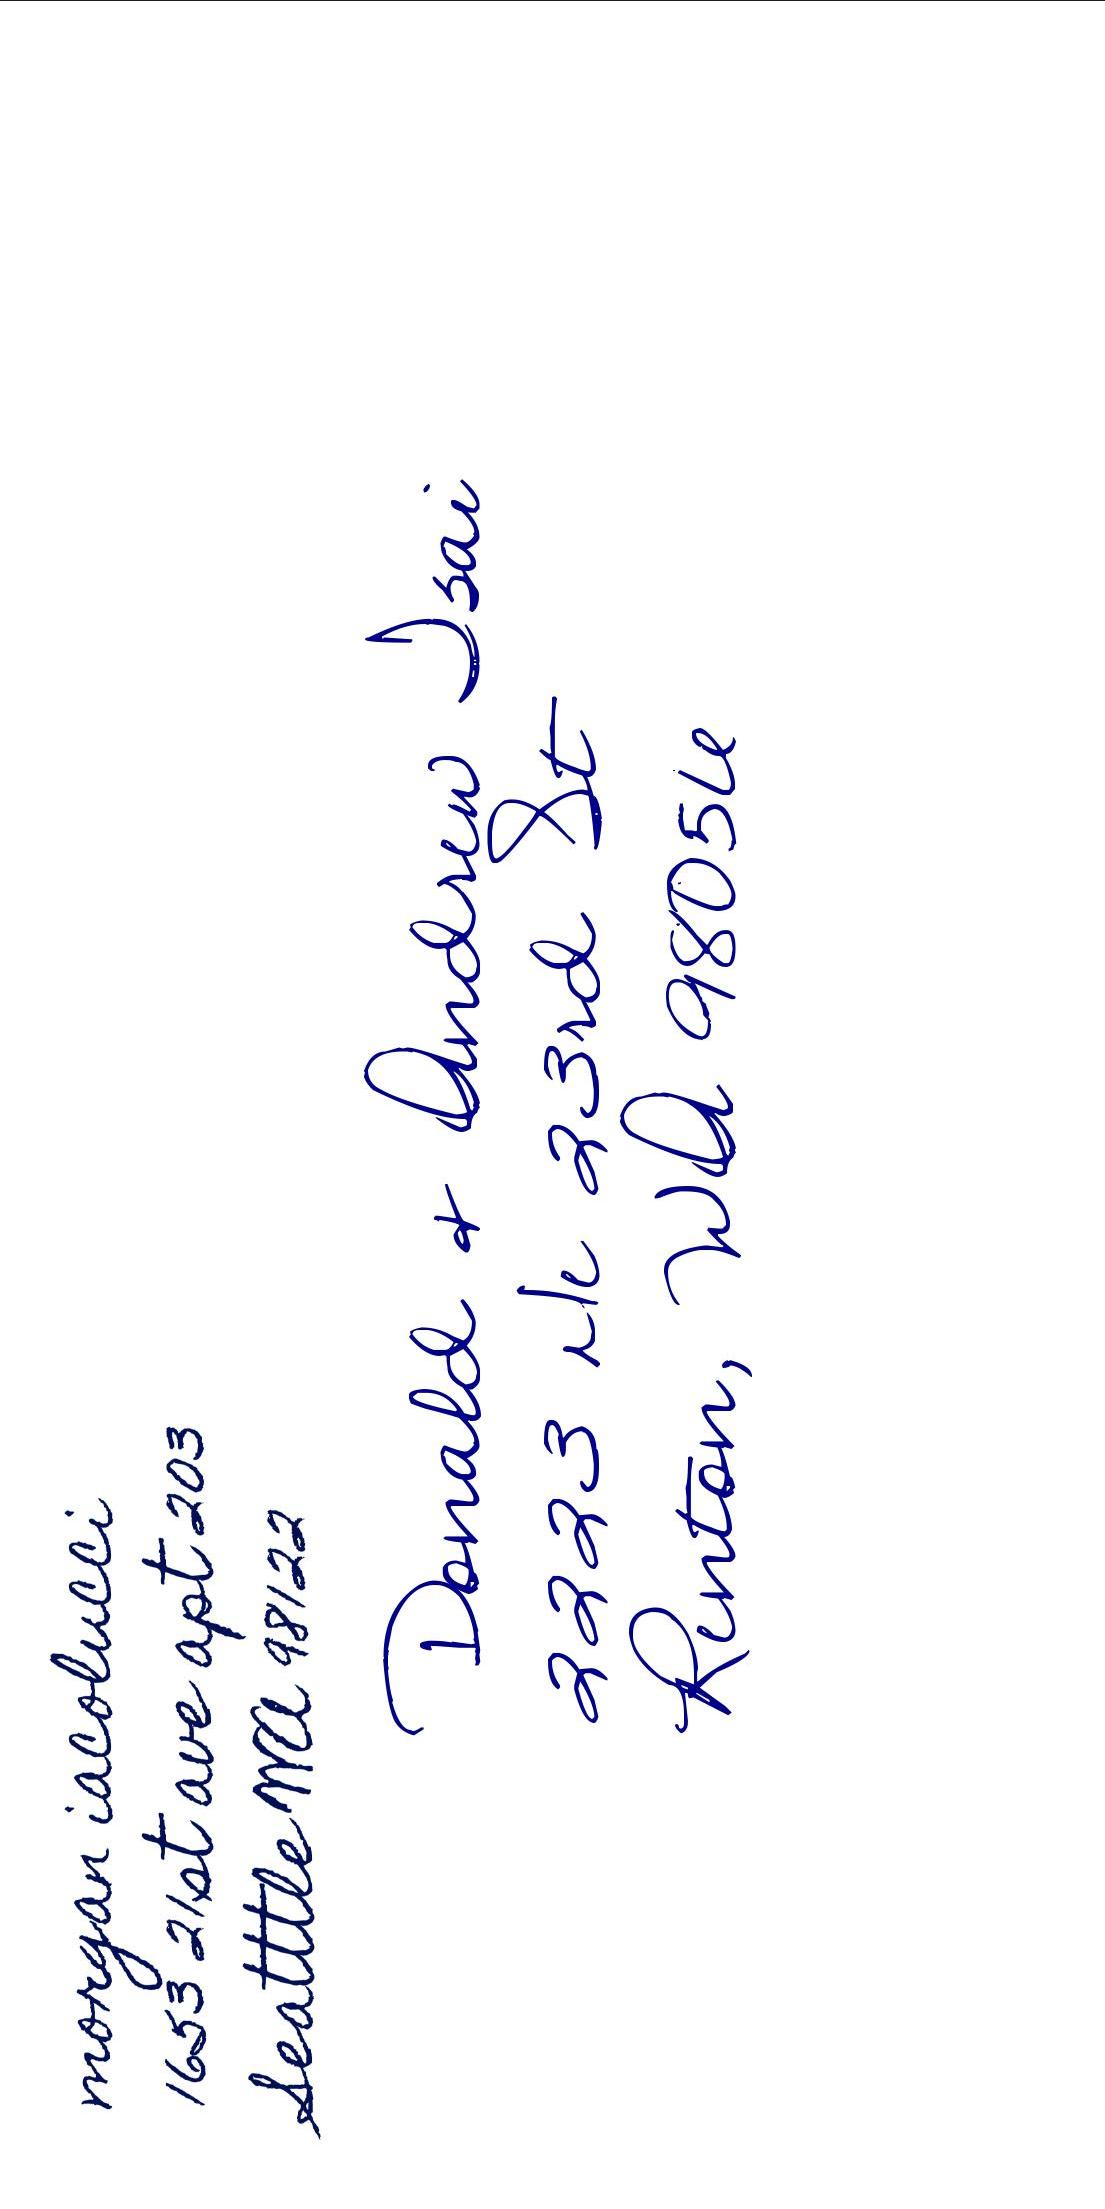 morgan iacolucci
1653 21st ave apt 203
Seattle WA 98122
Donald & Andrew Tsai
2223 NE 23rd St
Renton, WA 98056